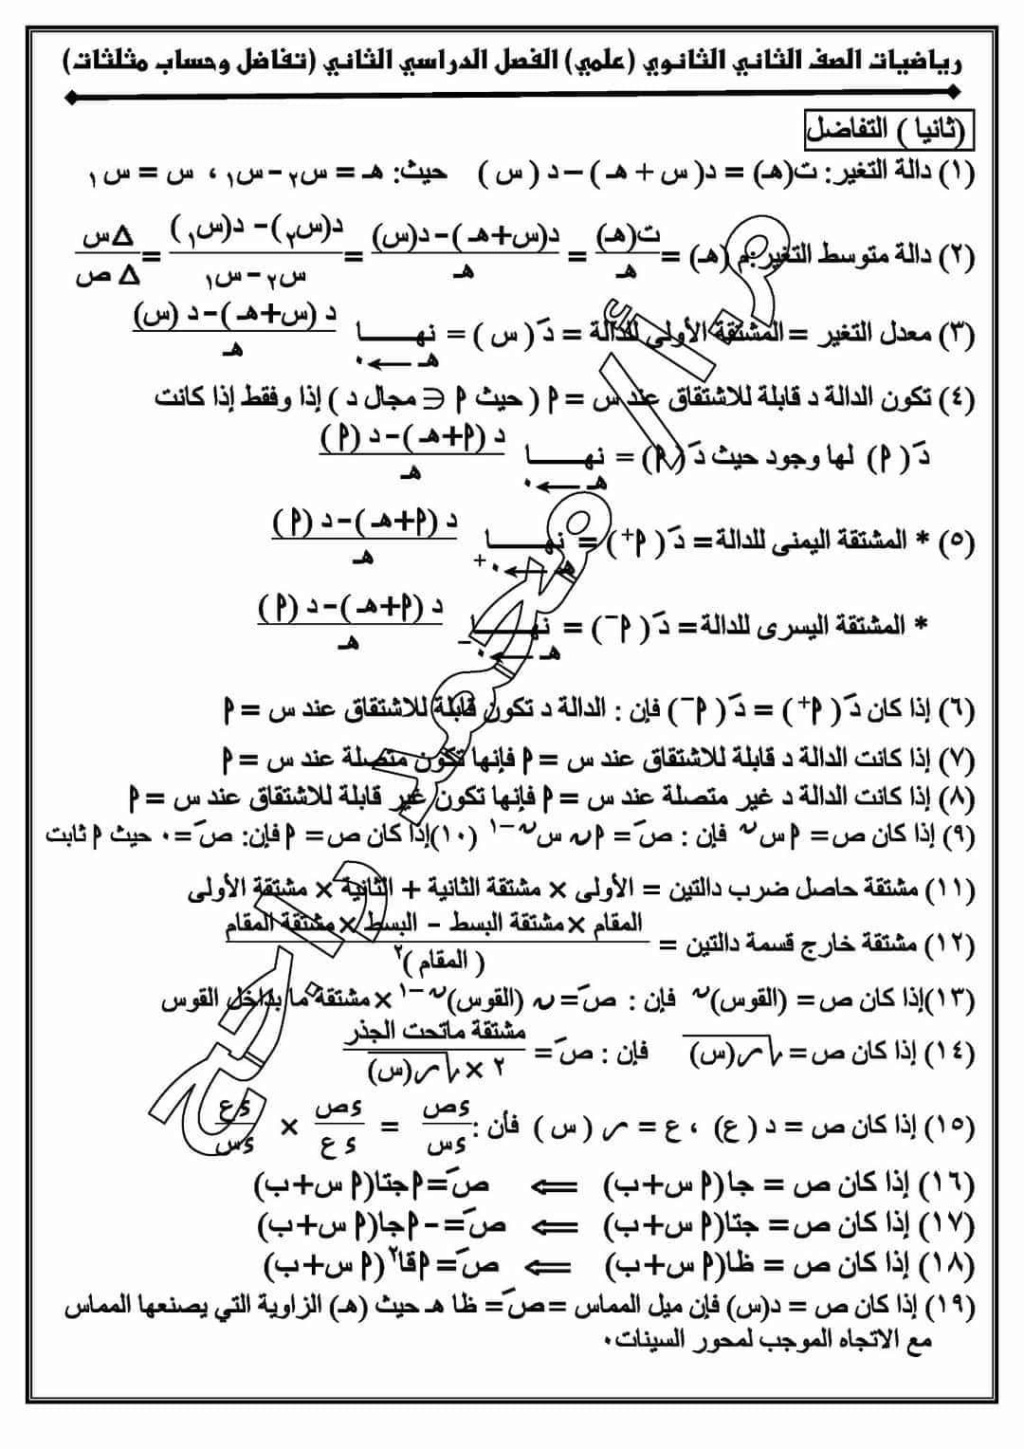 رياضيات الصف الثاني الثانوي (علمي) الفصل الدراسي الثاني (تفاضل وحساب مثلثات)
(ثانيا ) التفاضل
(١) دالة التغير: ت(هـ) = د( س + هـ ) – د ( س ) حيث: هـ = س٢ – س١ ، س = س١
(٢) دالة متوسط التغير: م (هـ) = ت(هـ)/هـ = د(س+هـ)–د(س)/هـ = د(س٢)– د(س١)/س٢ – س١ = Δس/Δ ص
(٣) معدل التغير = المشتقة الأولى للدالة = دَ ( س ) = نهــــا هـ ←٠ د (س+هـ)– د (س)/هـ
(٤) تكون الدالة د قابلة للاشتقاق عند س = ٩ ( حيث ٩ ∈ مجال د ) إذا وفقط إذا كانت
دَ ( ٩) لها وجود حيث دَ ( ٩) = نهــــا هـ ←٠ د (٩+هـ)– د (٩)/هـ
(٥) * المشتقة اليمنى للدالة = دَ ( ٩⁺) = نهــــا هـ ←٠⁺ د (٩+هـ)– د (٩)/هـ
* المشتقة اليسرى للدالة = دَ ( ٩⁻) = نهــــا هـ ←٠⁻ د (٩+هـ)– د (٩)/هـ
(٦) إذا كان دَ ( ٩⁺) = دَ ( ٩⁻) فإن : الدالة د تكون قابلة للاشتقاق عند س = ٩
(٧) إذا كانت الدالة د قابلة للاشتقاق عند س = ٩ فإنها تكون متصلة عند س = ٩
(٨) إذا كانت الدالة د غير متصلة عند س = ٩ فإنها تكون غير قابلة للاشتقاق عند س = ٩
(٩) إذا كان ص = ٩ س^ن فإن : صَ = ٩ ن س^ن–١ (١٠)إذا كان ص = ٩ فإن: صَ =٠ حيث ٩ ثابت
(١١) مشتقة حاصل ضرب دالتين = الأولى × مشتقة الثانية + الثانية × مشتقة الأولى
(١٢) مشتقة خارج قسمة دالتين = المقام × مشتقة البسط – البسط × مشتقة المقام/( المقام )٢
(١٣)إذا كان ص = (القوس)^ن فإن : صَ = ن (القوس)^ن–١ × مشتقة ما بداخل القوس
(١٤) إذا كان ص = √ر(س) فإن : صَ = مشتقة ماتحت الجذر/٢ × √ر(س)
(١٥) إذا كان ص = د ( ع) ، ع = ر ( س ) فأن : ءص/ءس = ءص/ء ع × ءع/ءس
(١٦) إذا كان ص = جا(٩ س+ب) ⇐ صَ = ٩جتا(٩ س+ب)
(١٧) إذا كان ص = جتا(٩ س+ب) ⇐ صَ = – ٩جا(٩ س+ب)
(١٨) إذا كان ص = ظا(٩ س+ب) ⇐ صَ = ٩قا٢(٩ س+ب)
(١٩) إذا كان ص = د(س) فإن ميل المماس = صَ = ظا هـ حيث (هـ) الزاوية التي يصنعها المماس
مع الاتجاه الموجب لمحور السينات.